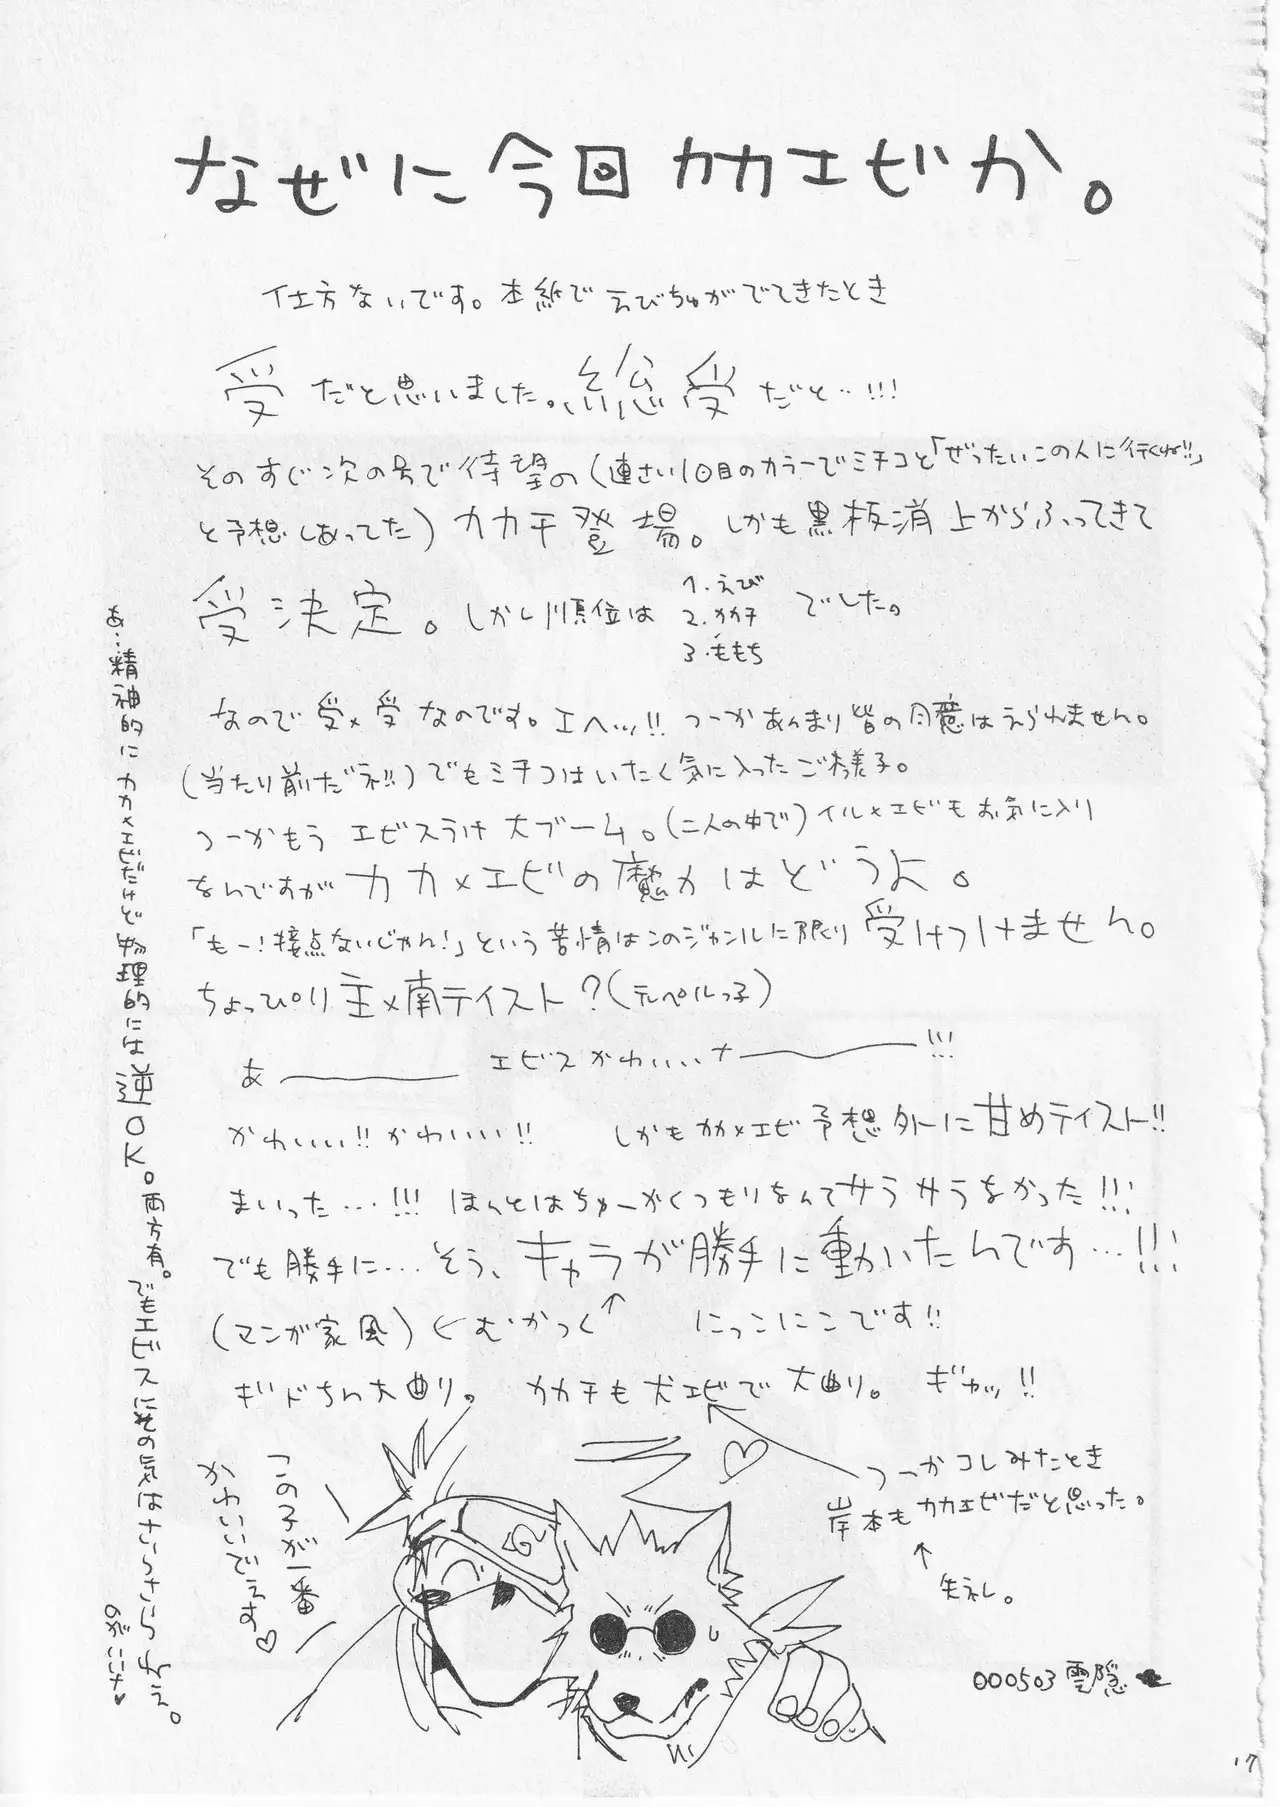 なぜに今回カカエビか。
仕方ないです。本紙でえびちゅがでてきたとき
受だと思いました。総受だと…!!!
そのすぐ次の号で待望の(連さい1回目のカラーでミチコと「ぜったいこの人に行くね!!」
と予想しあってた)カカチ登場。しかも黒板消上からふってきて
受決定。しかし順位は
1.えび
2.カカチ
3.ももち
でした。
なので受×受なのです。エヘッ!!つーかあんまり皆の同意はえられません。
(当たり前だネ!!)でもミチコはいたく気に入ったご様子。
つーかもうエビスうけ大ブーム。(二人の中で)イル×エビもお気に入り
なんですがカカ×エビの魔力はどうよ。
「もー!接点ないじゃん!」という苦情はこのジャンルに限り受けつけません。
ちょっぴり主×南テイスト?(テルペルっ子)
あーエビスかわいいナー!!!
かわいい!!かわいい!!しかもカカ×エビ予想外に甘めテイスト!!
まいった…!!!ほんとはちゅーかくつもりなんてサラサラなかった!!!
でも勝手に…そう、キャラが勝手に動いたんです…!!!
(マンガ家風)←むかつく↑にっこにこです!!
ギドちん大曲り。カカチも犬エビで大曲り。ギャッ!!
つーかコレみたとき
岸本もカカエビだと思った。
↑
失ネし。
この子が一番
かわいいでえす♡
あ…精神的にカカ×エビだけど物理的には逆OK。両方有。でもエビスにその気はさらさらねえ。
のがいいナ♥
000503 雲隠
17